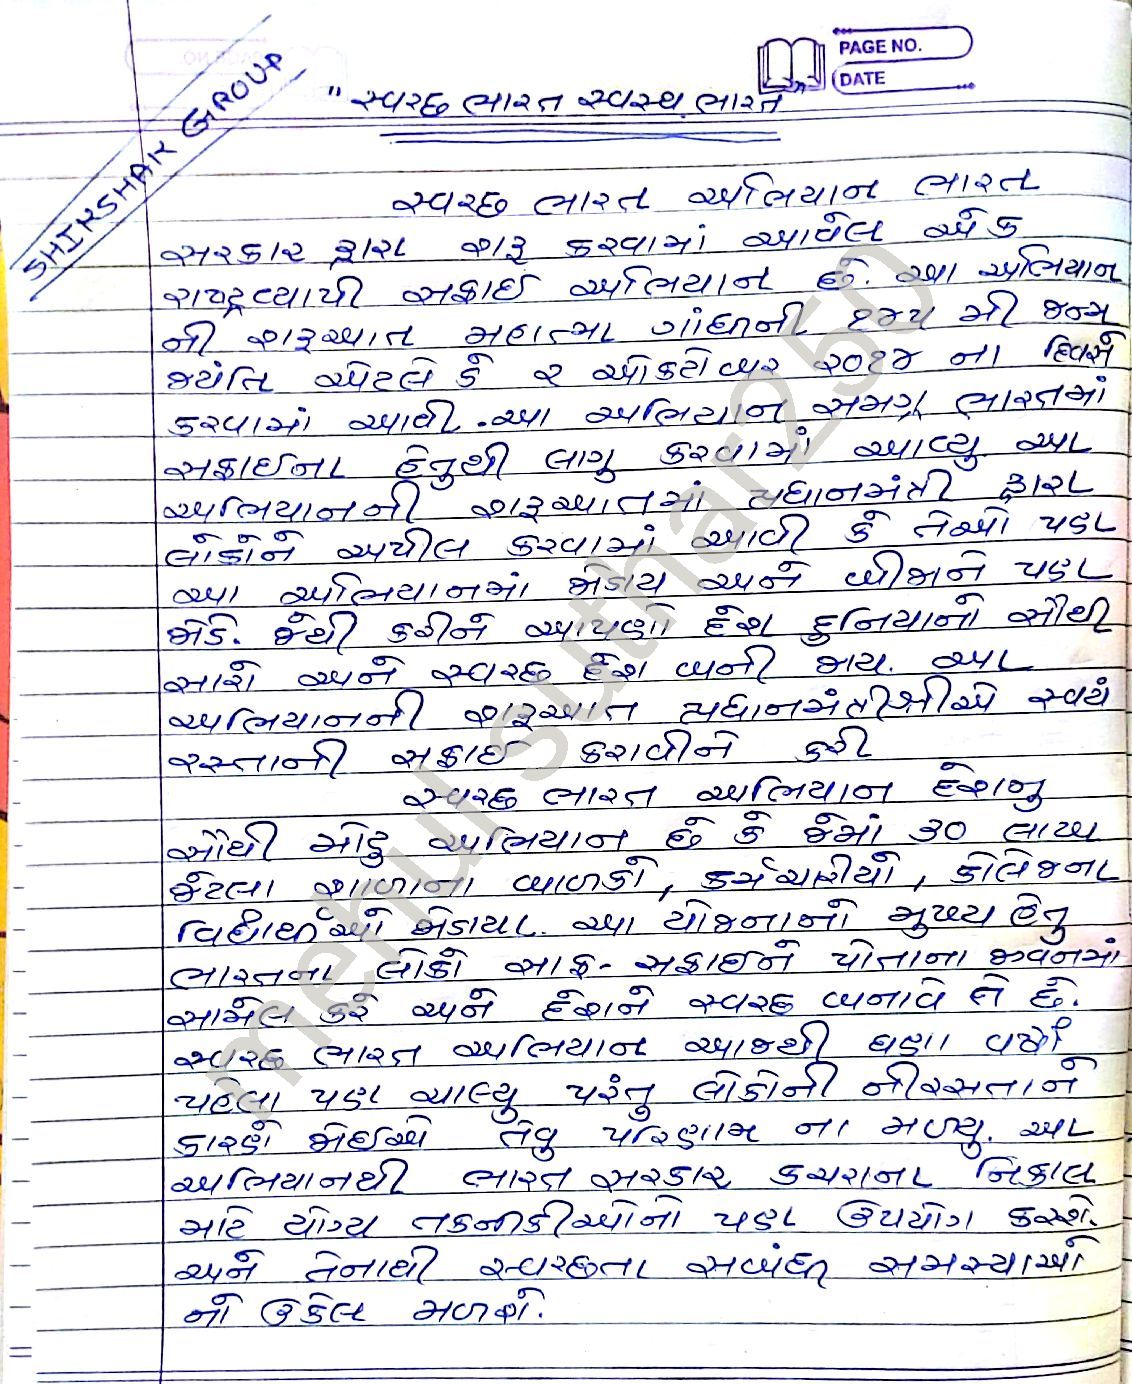 PAGE NO.
DATE
SHIKSHAK GROUP
" સ્વચ્છ ભારત સ્વસ્થ ભારત "
સ્વચ્છ ભારત અભિયાન ભારત
સરકાર દ્વારા શરૂ કરવામાં આવેલ એક
રાષ્ટ્રવ્યાપી સફાઈ અભિયાન છે. આ અભિયાન
ની શરૂઆત મહાત્મા ગાંધીની ૧૪૫ મી જન્મ
જયંતિ એટલે કે ૨ ઓકટોબર ૨૦૧૪ ના દિવસે
કરવામાં આવી. આ અભિયાન સમગ્ર ભારતમાં
સફાઈના હેતુથી લાગુ કરવામાં આવ્યુ આ
અભિયાનની શરૂઆતમાં પ્રધાનમંત્રી દ્વારા
લોકોને અપીલ કરવામાં આવી કે તેઓ પણ
આ અભિયાનમાં જોડાય અને બીજાને પણ
જોડે. જેથી કરીને આપણો દેશ દુનિયાનો સૌથી
સારો અને સ્વચ્છ દેશ બની જાય. આ
અભિયાનની શરૂઆત પ્રધાનમંત્રીશ્રીએ સ્વયં
રસ્તાની સફાઈ કરાવીને કરી
સ્વચ્છ ભારત અભિયાન દેશનુ
સૌથી મોટુ અભિયાન છે કે જેમાં ૩૦ લાખ
જેટલા શાળાના બાળકો, કર્મચારીયો, કોલેજના
વિદ્યાર્થીઓ જોડાયા. આ યોજનાનો મુખ્ય હેતુ
ભારતના લોકો સાફ-સફાઈને પોતાના જીવનમાં
સામેલ કરે અને દેશને સ્વચ્છ બનાવે તે છે.
સ્વચ્છ ભારત અભિયાન આજથી ઘણા વર્ષો
પહેલા પણ ચાલ્યુ પરંતુ લોકોની નીરસતાને
કારણે જોઈએ તેવુ પરિણામ ના મળ્યુ. આ
અભિયાનથી ભારત સરકાર કચરાના નિકાલ
માટે યોગ્ય તકનીકીઓનો પણ ઉપયોગ કરશે.
અને તેનાથી સ્વચ્છતા સબંધી સમસ્યાઓ
નો ઉકેલ મળશે.
mehul suthar250